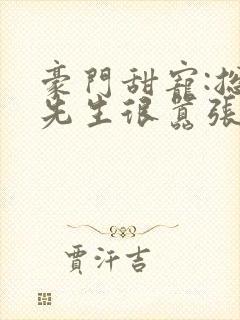 豪門甜寵:
先生很囂張
賈汗吉